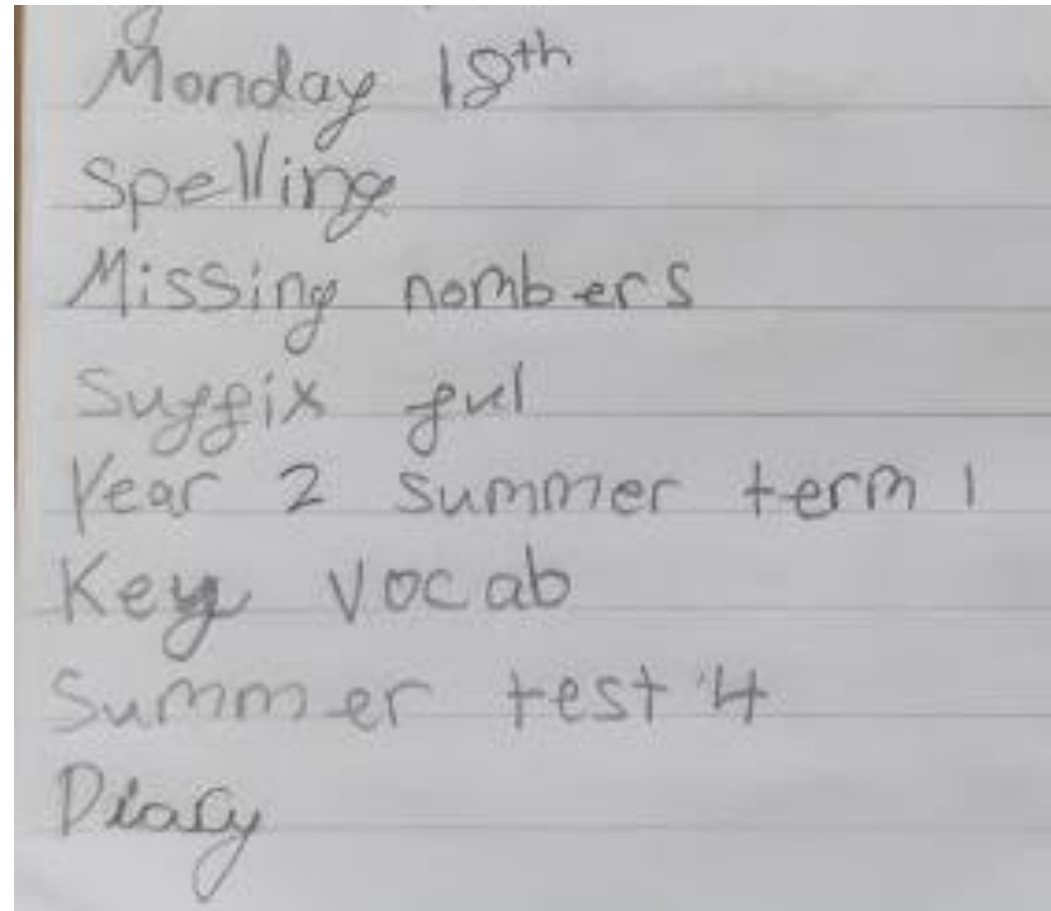 Monday 18th
Spelling
Missing nombers
Suffix ful
Year 2 summer term 1
Key vocab
Summer test 4
Diary